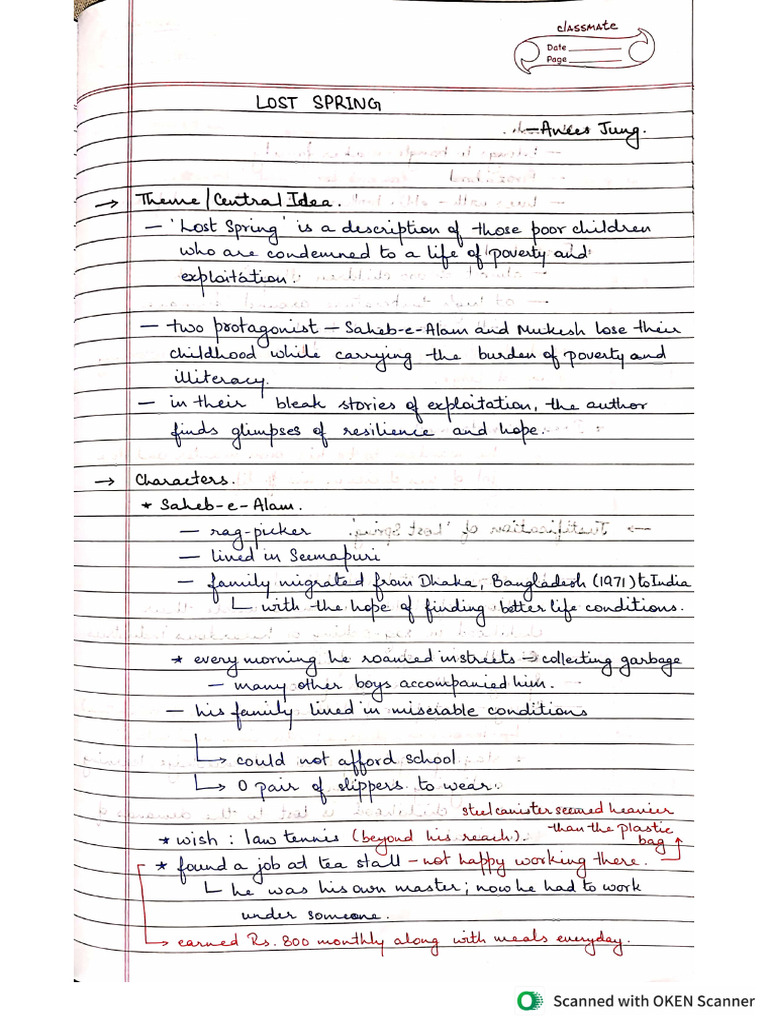 classmate
Date
Page
LOST SPRING
- Anees Jung.
→ Theme/Central Idea.
- 'Lost Spring' is a description of those poor children
who are condemned to a life of poverty and
exploitation.
- two protagonist - Saheb-e-Alam and Mukesh lose their
childhood while carrying the burden of poverty and
illiteracy.
- in their bleak stories of exploitation, the author
finds glimpses of resilience and hope.
→ Characters.
* Saheb-e-Alam.
- rag-picker
- lived in Seemapuri
- family migrated from Dhaka, Bangladesh (1971) to India
↳ with the hope of finding better life conditions.
* every morning he roamed in streets → collecting garbage
- many other boys accompanied him.
- his family lived in miserable conditions
↳ could not afford school
↳ 0 pair of slippers to wear.
steel canister seemed heavier
than the plastic
bag
* wish : law tennis (beyond his reach).
* found a job at tea stall - not happy working there.
↳ he was his own master; now he had to work
under someone.
↳ earned Rs. 800 monthly along with meals everyday.
Scanned with OKEN Scanner